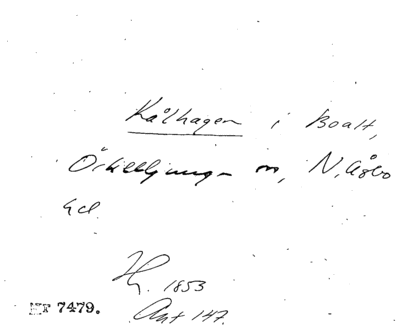 Kålhagen i Boalt,
Örkelljunga sn, N. Åsbo
hd
Hg. 1853
MF 7479.
Ant 147.